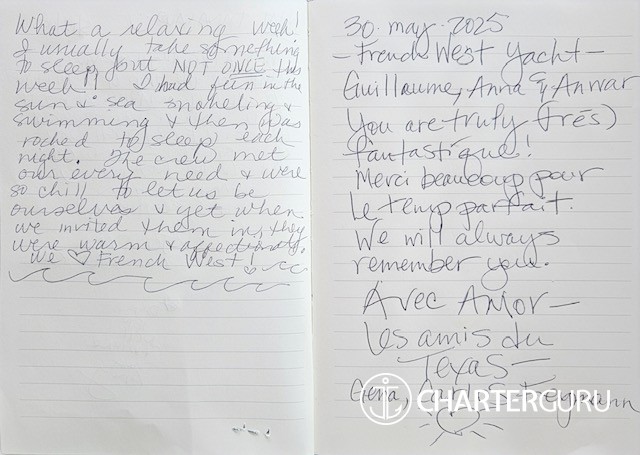 What a relaxing week!
I usually take something
to sleep but NOT ONCE this
week!! I had fun in the
sun & sea snorkeling &
swimming & then was
rocked to sleep each
night. The crew met
our every need & were
so chill to let us be
ourselves & yet when
we invited them in, they
were warm & affectionate.
We ♡ French West!
30. may. 2025
- French West Yacht -
Guillaume, Anna & Anwar
You are truly (très)
fantastique!
Merci beaucoup pour
le temp parfait.
We will always
remember you.
Avec Amor -
Les amis du
Texas -
Gena,
CHARTERGURU